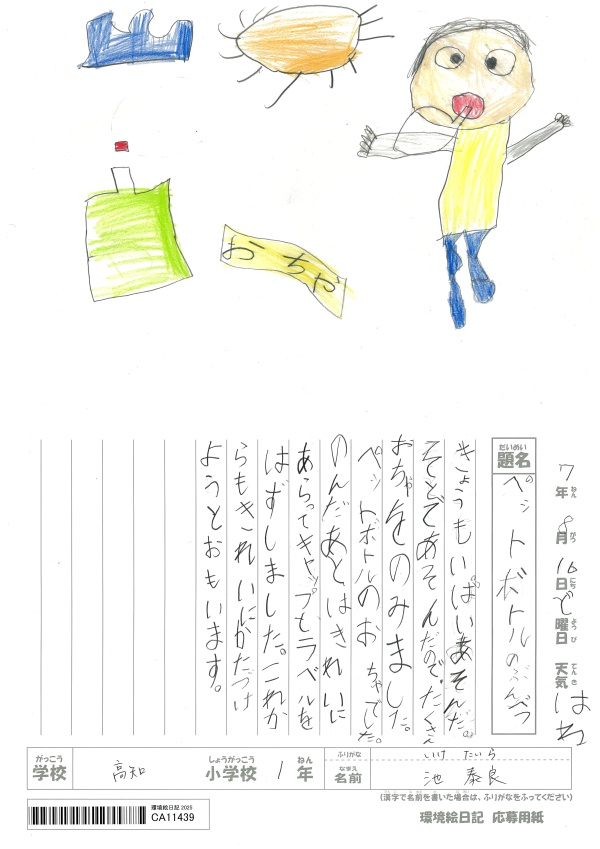 おーちゃ
7年ねん8月がつ16日にちど曜日ようび天気てんきはれ
題名だいめい ペットボトルのぶんべつ
きょうもいぱいあそんだ。
そとであそんだので、たくさん
おちゃをのみました。
ペットボトルのおちゃでした。
のんだあとはきれいに
あらってキャップとラベルを
はずしました。これか
らもきれいにかたづけ
ようとおもいます。
学校がっこう 高知 小学校しょうがっこう 1年ねん
ふりがな いけ たいら
名前なまえ 池 泰良
(漢字で名前を書いた場合は、ふりがなをふってください)
環境絵日記 2025
CA11439
環境絵日記 応募用紙